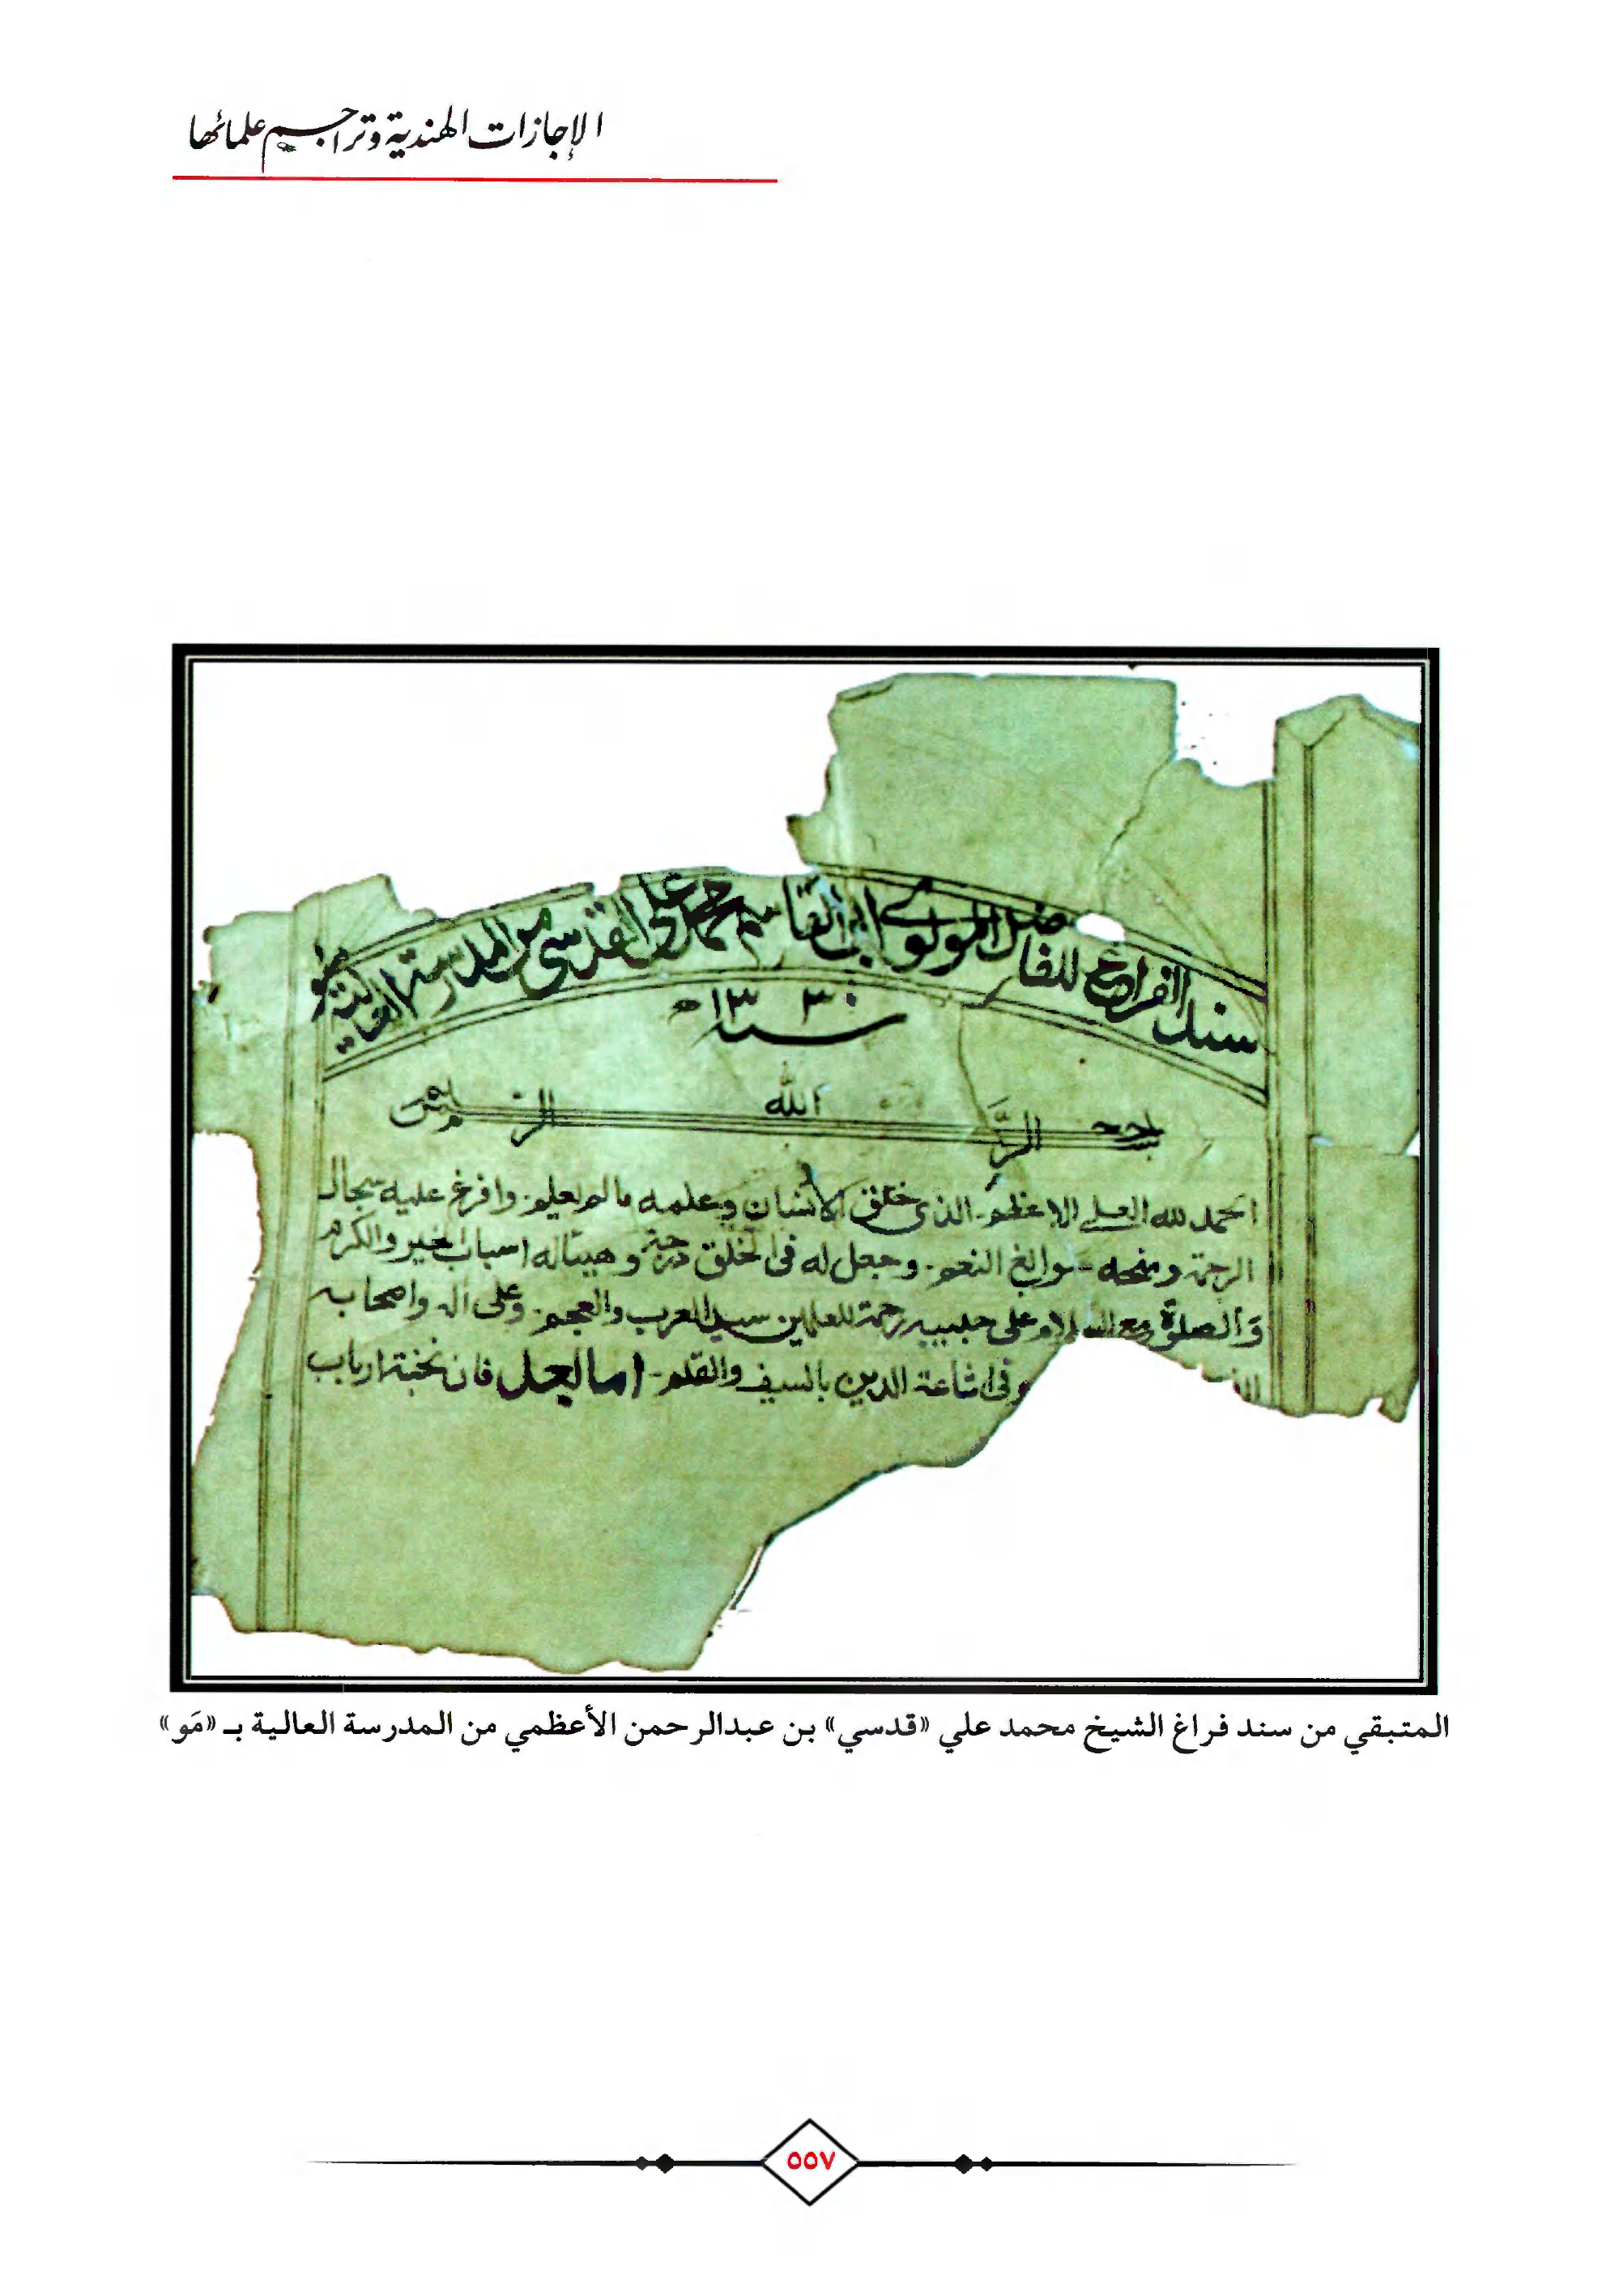 الإجازات الهندية وتراجم علمائها
سند الفراغ للفاضل المولوي ابي القاسم محمد علي القدسي من المدرسة العالية مئو
سنة ١٣٣٠ هـ
بسم الله الرحمن الرحيم
الحمد لله العلي الاعظم - الذي خلق الانسان وعلمه ما لم يعلم - وافرغ عليه سجال
الرحمة ومنحه سوابغ النعم - وجعل له في الخلق درجة وهيأ له اسباب الخير والكرم
والصلوة مع السلام على حبيبه رحمة للعلمين سيد العرب والعجم - وعلى اله واصحابه
وفي اشاعة الدين بالسيف والقلم - اما بعد فان نخبة ارباب
المتبقي من سند فراغ الشيخ محمد علي «قدسي» بن عبدالرحمن الأعظمي من المدرسة العالية بـ «مَو»
٥٥٧